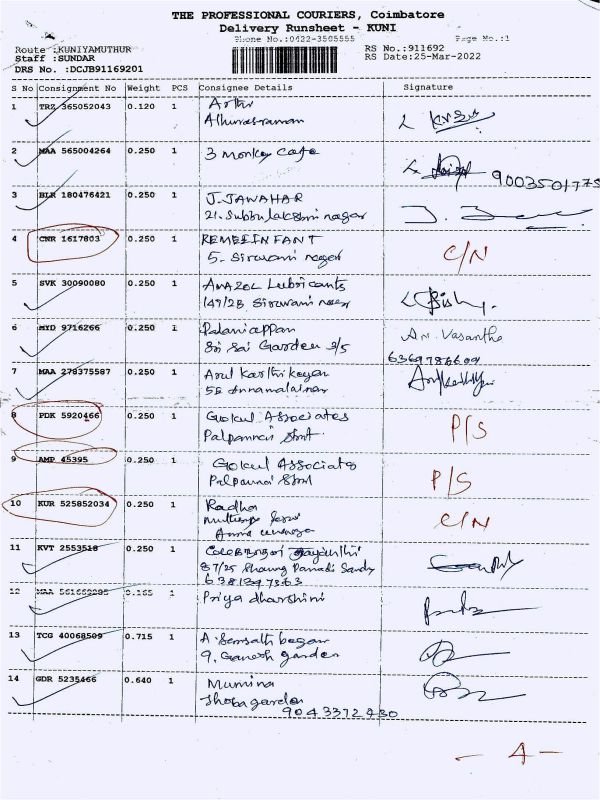 THE PROFESSIONAL COURIERS, Coimbatore
Delivery Runsheet - KUNI
Phone No.:0422-3505555 Page No.:1
Route :KUNIYAMUTHUR RS No.:911692
Staff :SUNDAR RS Date:25-Mar-2022
DRS No. :DCJB91169201
S No Consignment No Weight PCS Consignee Details Signature
1 TRZ 365052043 0.120 1
2 MAA 565004264 0.250 1 3 Monkey Cafe
9003501775
3 BLR 180476421 0.250 1 J. JAWAHAR
21. Subbulakshmi nagar
4 CNR 1617803 0.250 1 C/N
5. Siruvani nagar
5 SVK 30090080 0.250 1 AMAZOL Lubricants
149/2B Siruvani
6 HYD 9716266 0.250 1 Palaniappan AN. Vasantha
Sri Sai Garden 2/5
7 MAA 278375587 0.250 1 Arul Karthikeyan
5B Annamalainar
8 PDK 5920466 0.250 1 Gokul Associates P/S
Palpannai Strt
9 AMP 45395 0.250 1 Gokul Associates P/S
Palpannai Strt
10 KUR 525852034 0.250 1 Radha C/N
11 KVT 2553518 0.250 1
87/25
6381397363
12 MAA 561662285 0.165 1 Priya dharshini
13 TCG 40068509 0.715 1 A. begam
9. Ganesh garden
14 GDR 5235466 0.640 1 Mumina
Shobagarden
9043372430
- 4 -